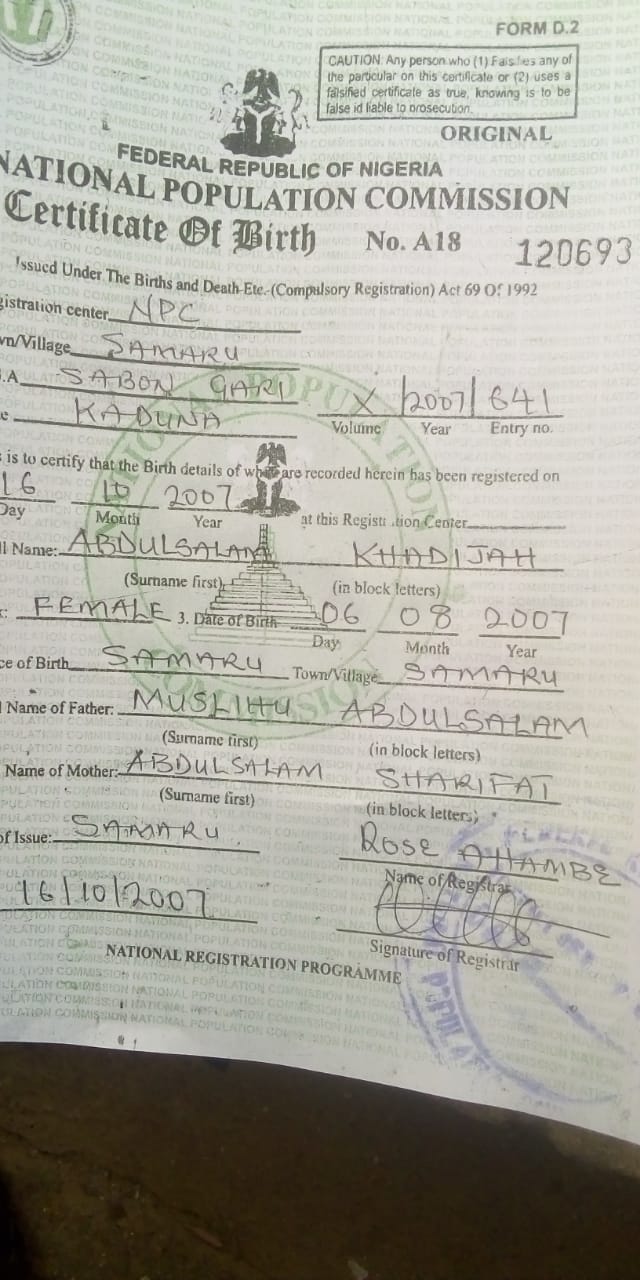 FORM D.2
CAUTION: Any person who (1) Falsifies any of
the particular on this certificate or (2) uses a
falsified certificate as true, knowing is to be
false id liable to prosecution.
ORIGINAL
FEDERAL REPUBLIC OF NIGERIA
NATIONAL POPULATION COMMISSION
Certificate Of Birth No. A18 120693
Issued Under The Births and Death Etc.-(Compulsory Registration) Act 69 Of 1992
gistration center NPC
wn/Village SAMARU
.A SABON GARI
e KADUNA X 2007 641
Volume Year Entry no.
is to certify that the Birth details of who are recorded herein has been registered on
16 10 2007
Day Month Year at this Registration Center
ll Name: ABDULSALAM KHADIJAH
(Surname first) (in block letters)
x: FEMALE 3. Date of Birth 06 08 2007
Day Month Year
ce of Birth SAMARU Town/Village SAMARU
l Name of Father: MUSLIHU ABDULSALAM
(Surname first) (in block letters)
Name of Mother: ABDULSALAM SHARIFAT
(Surname first) (in block letters)
of Issue: SAMARU
ROSE AHAMBE
Name of Registrar
16/10/2007
Signature of Registrar
NATIONAL REGISTRATION PROGRAMME